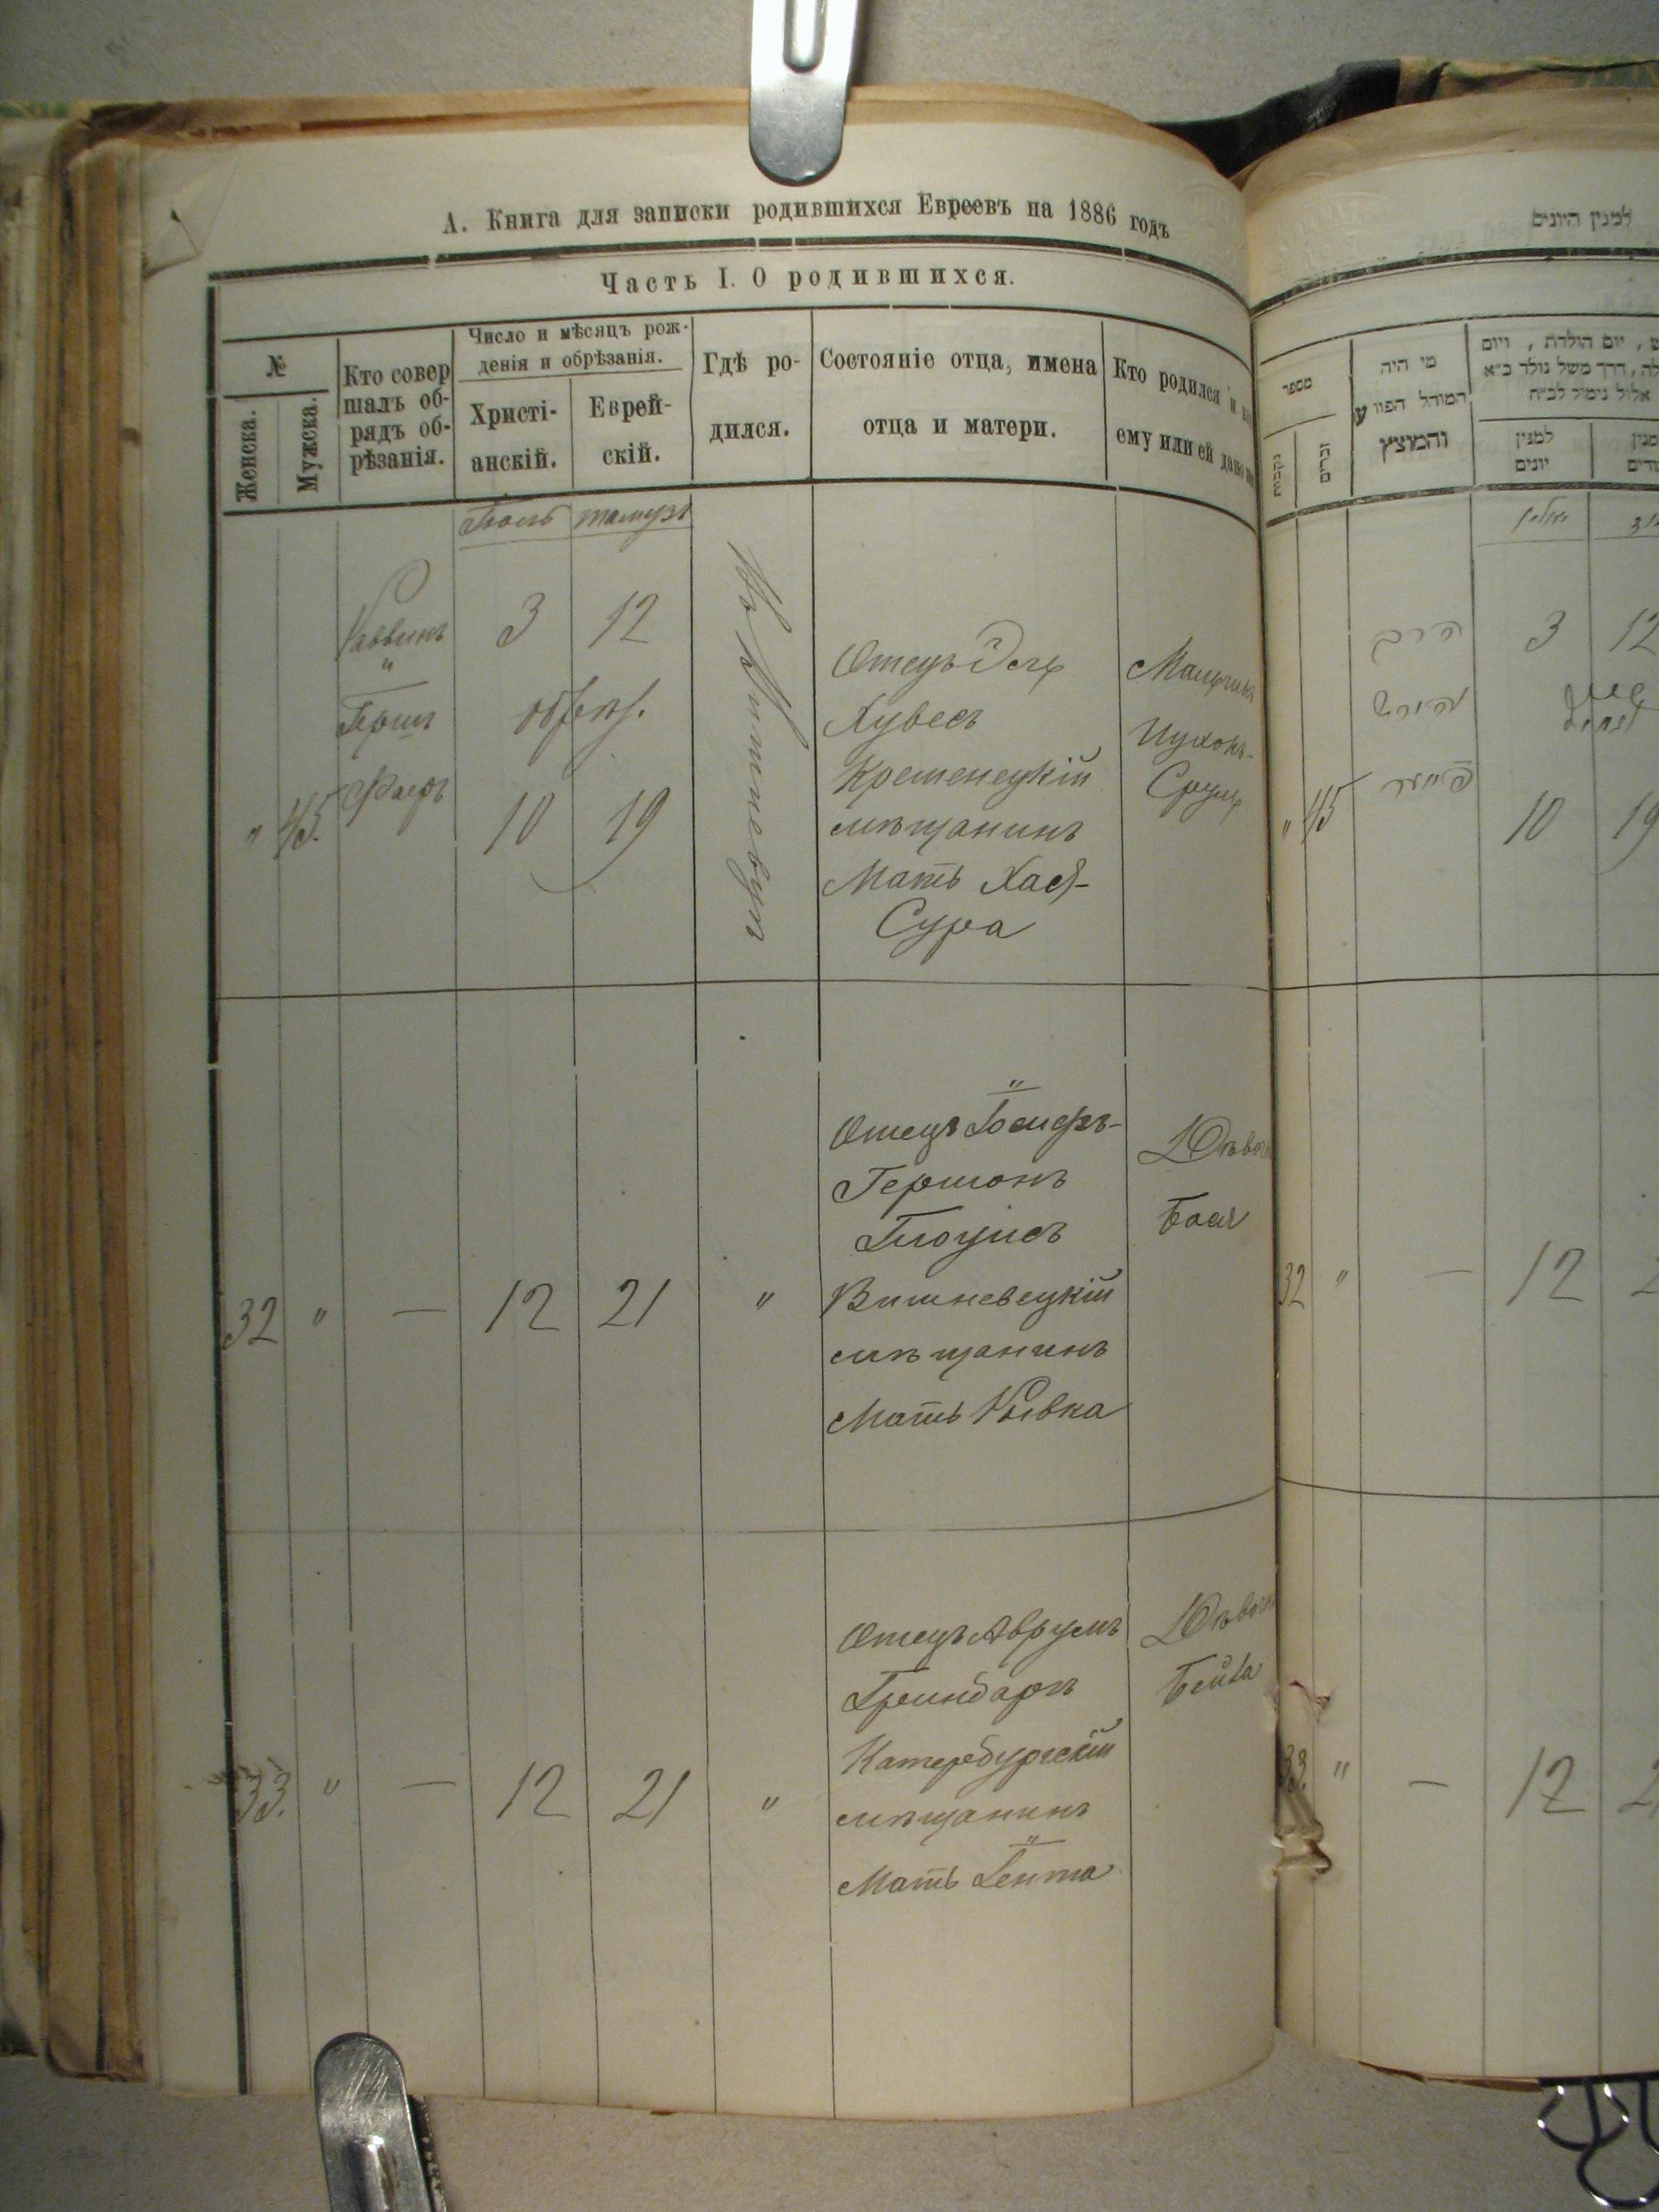 А. Книга для записки родившихся Евреевъ на 1886 годъ
Часть I. О родившихся.
№
Женска.
Мужска.
Кто совер
шалъ об-
рядъ об-
рѣзанія.
Число и мѣсяцъ рож-
денія и обрѣзанія.
Христі-
анскій.
Еврей-
скій.
Гдѣ ро-
дился.
Состояніе отца, имена
отца и матери.
Кто родился и
ему или ей дано
Іюль тамузъ
" 45.
Раввинъ
"
Герш
Фаеръ
3 12
обрѣз.
10 19
Во Вишневцѣ
Отецъ
Хувесъ
Кременецкій
мѣщанинъ
Мать Хая-
Сура
Мальчикъ
Ицхокъ-
Сруль
32 " — 12 21 "
Отецъ
Гершонъ
Вишневецкій
мѣщанинъ
Мать Рывка
Дѣвоч
Бася
33. " — 12 21 "
Отецъ Аврумъ
Гринбаръ
Катербургскій
мѣщанинъ
Мать Гента
Дѣвочк
Бейла
למנין היונים
מספר
נקבות
זכרים
מי היה
המוהל הפורע
והמוצץ
יום הולדת , ויום
דרך משל נולד כ״א
אלול נימול לכ״ח
למנין
יונים
יוליי
הרב
" 45
3 12
10 19
32 " — 12
33. " — 12